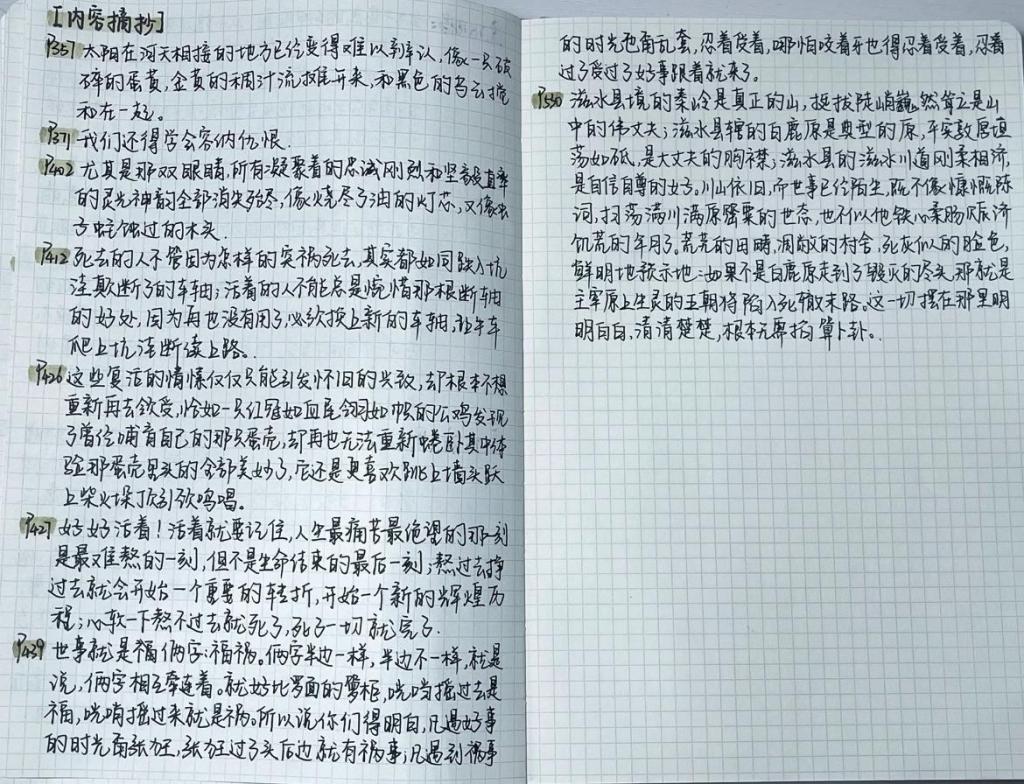 [内容摘抄]
P357 太阳在河天相接的地方已经变得难以辨认,像一只破
碎的蛋黄,金黄的稠汁流摊开来,和黑色的乌云搅
和在一起。
P371 我们还得学会容纳仇恨.
P402 尤其是那双眼睛,所有凝聚着的忠诚刚烈和坚毅直率
的灵光神韵全部消失殆尽,像烧尽了油的灯芯,又像虫
子蛀蚀过的木头.
P412 死去的人不管因为怎样的灾祸死去,其实都如同跌入坑
洼颠断了的车轴;活着的人不能总是惋惜那根断轴
的好处,因为再也没有用了,必须换上新的车轴,让牛车
爬上坑洼继续上路。
P426 这些复活的情愫仅仅只能引发怀旧的兴致,却根本不想
重新再去领受,恰如一只红冠如血尾翎如帜的公鸡发现
了曾经哺育自己的那只蛋壳,却再也无法重新蜷卧其中体
验那蛋壳里头的全部美妙了,它还是更喜欢跳上墙头跃
上柴火垛顶引颈鸣唱。
P427 好好活着!活着就要记住,人生最痛苦最绝望的那一刻
是最难熬的一刻,但不是生命结束的最后一刻;熬过去挣
过去就会开始一个重要的转折,开始一个新的辉煌历
程;心软一下熬不过去就死了,死了一切就完了.
P439 世事就是福俩字:福祸。俩字半边一样,半边不一样,就是
说,俩字相互牵连着。就好比罗面的箩框,咣当摇过去是
福,咣当摇过来就是祸。所以说你们得明白,凡遇好事
的时光甭张狂,张狂过了头后边就有祸事;凡遇到祸事
的时光也甭乱套,忍着受着,哪怕咬着牙也得忍着受着,忍着
过了受过了好事跟着就来了。
P550 滋水县境的秦岭是真正的山,挺拔陡峭巍然耸立是山
中的伟丈夫;滋水县辖的白鹿原是典型的原,平实敦厚坦
荡如砥,是大丈夫的胸襟;滋水县的滋水川道刚柔相济,
是自信自尊的女子。川山依旧,而世事已经陌生,既不像慷慨陈
词,扫荡满川满原罂粟的世态,也不似他铁心柔肠赈济
饥荒的年月了。荒芜的田畴,凋敝的村舍,死灰似的脸色,
鲜明地预示地:如果不是白鹿原走到了毁灭的尽头,那就是
主宰原上生灵的王朝将陷入死辙末路。这一切摆在那里明
明白白,清清楚楚,根本无需掐算卜卦。